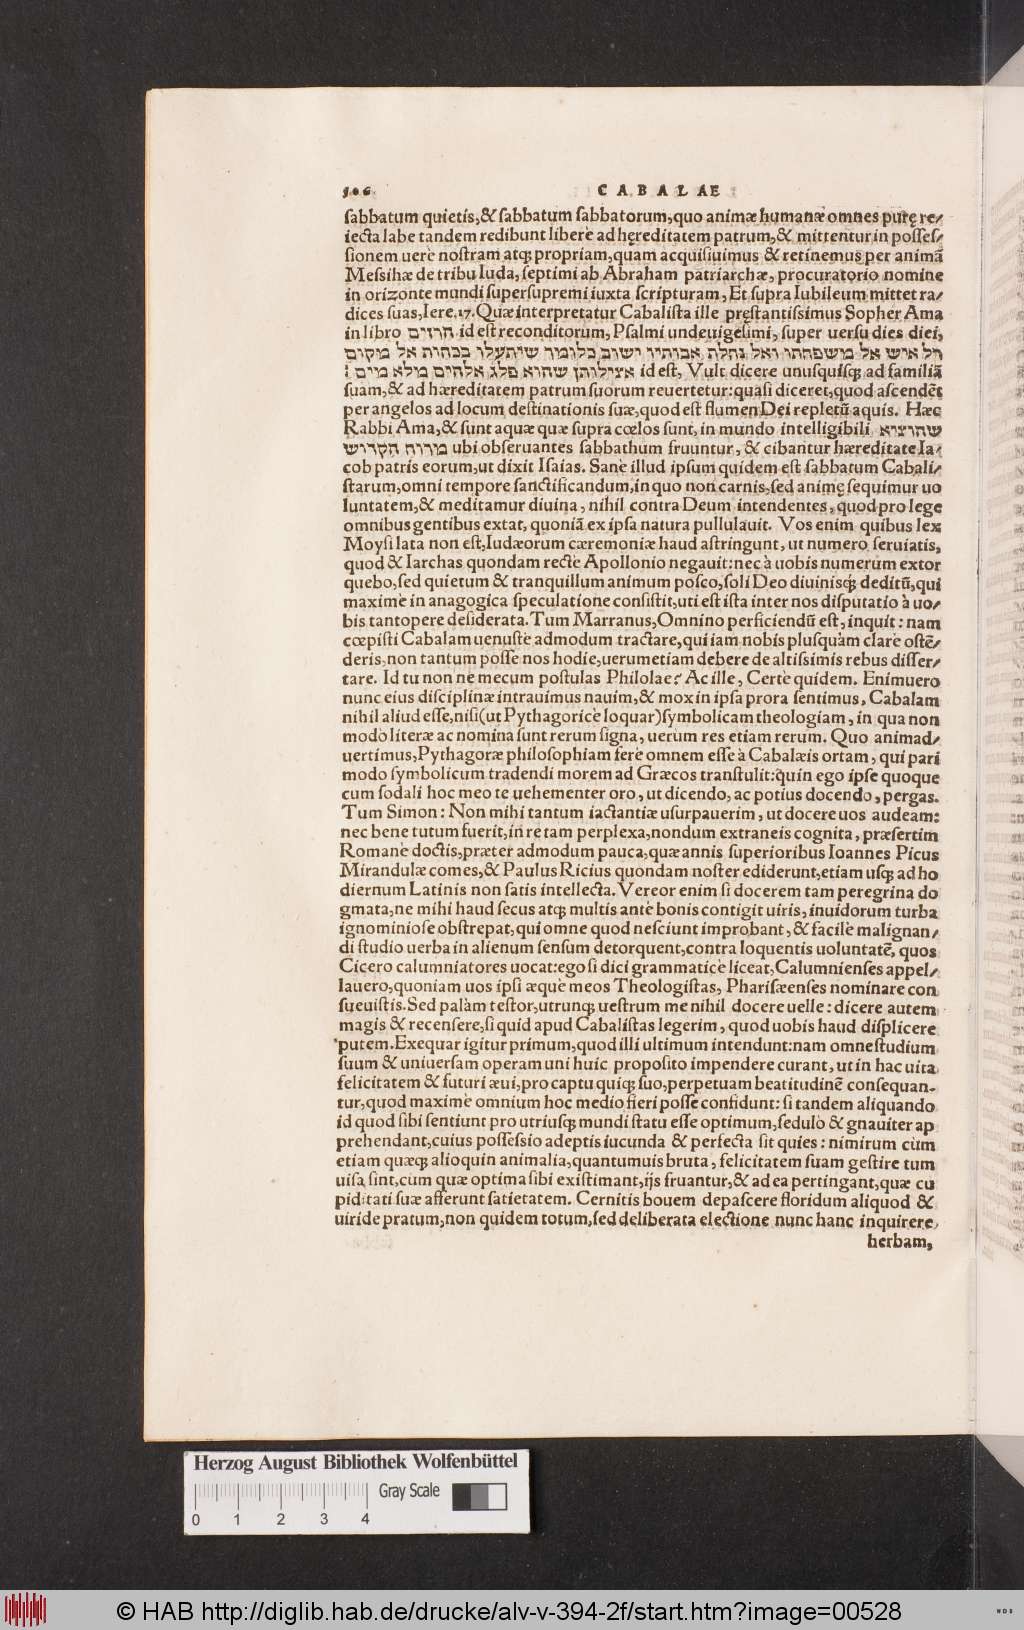 506 CABALAE
sabbatum quietis,& sabbatum sabbatorum,quo animæ humanæ omnes purę re/
iecta labe tandem redibunt liberè ad hęreditatem patrum,& mittentur in posses/
sionem uerè nostram atq; propriam,quam acquisiuimus & retinemus per animā
Messihæ de tribu Iuda, septimi ab Abraham patriarchæ, procuratorio nomine
in orizonte mundi supersupremi iuxta scripturam, Et supra Iubileum mittet ra/
dices suas,Iere.17.Quæ interpretatur Cabalista ille pręstantissimus Sopher Ama
in libro חרוזים id est reconditorum, Psalmi undeuigesimi, super uersu dies diei,
רל איש אל משפחתו ואל נחלת אבותיו ישוב כלומר שיתעלו בכחות אל מקום
אצילותן שהוא פלג אלהים מולא מים : id est, Vult dicere unusquisq; ad familiā
suam,& ad hæreditatem patrum suorum reuertetur:quasi diceret,quod ascendēt
per angelos ad locum destinationis suæ,quod est flumen Dei repletū aquis. Hæc
Rabbi Ama,& sunt aquæ quæ supra cœlos sunt, in mundo intelligibili שהוציא
מרוח הקדוש ubi obseruantes sabbathum fruuntur, & cibantur hæreditate Ia/
cob patris eorum,ut dixit Isaias. Sanè illud ipsum quidem est sabbatum Cabali/
starum,omni tempore sanctificandum,in quo non carnis,sed animę sequimur uo
luntatem,& meditamur diuina, nihil contra Deum intendentes, quod pro lege
omnibus gentibus extat, quoniā ex ipsa natura pullulauit. Vos enim quibus lex
Moysi lata non est,Iudæorum cæremoniæ haud astringunt, ut numero seruiatis,
quod & Iarchas quondam rectè Apollonio negauit:nec à uobis numerum extor
quebo,sed quietum & tranquillum animum posco,soli Deo diuinisq; deditū,qui
maximè in anagogica speculatione consistit,uti est ista inter nos disputatio à uo/
bis tantopere desiderata.Tum Marranus,Omnino perficiendū est, inquit : nam
cœpisti Cabalam uenustè admodum tractare,qui iam nobis plusquàm clarè ostē/
deris,non tantum posse nos hodie,uerumetiam debere de altissimis rebus disser/
tare. Id tu non ne mecum postulas Philolae? Ac ille, Certè quidem. Enimuero
nunc eius disciplinæ intrauimus nauim,& mox in ipsa prora sentimus, Cabalam
nihil aliud esse,nisi(ut Pythagoricè loquar)symbolicam theologiam, in qua non
modò literæ ac nomina sunt rerum signa, uerum res etiam rerum. Quo animad/
uertimus,Pythagoræ philosophiam ferè omnem esse à Cabalæis ortam, qui pari
modo symbolicum tradendi morem ad Græcos transtulit:quin ego ipse quoque
cum sodali hoc meo te uehementer oro, ut dicendo, ac potius docendo, pergas.
Tum Simon: Non mihi tantum iactantiæ usurpauerim, ut docere uos audeam:
nec bene tutum fuerit,in re tam perplexa,nondum extraneis cognita, præsertim
Romanè doctis,præter admodum pauca,quæ annis superioribus Ioannes Picus
Mirandulæ comes,& Paulus Ricius quondam noster ediderunt,etiam usq; ad ho
diernum Latinis non satis intellecta.Vereor enim si docerem tam peregrina do
gmata,ne mihi haud secus atq; multis antè bonis contigit uiris, inuidorum turba
ignominiose obstrepat,qui omne quod nesciunt improbant,& facilè malignan/
di studio uerba in alienum sensum detorquent,contra loquentis uoluntatē, quos
Cicero calumniatores uocat:ego si dici grammaticè liceat,Calumnienses appel/
lauero,quoniam uos ipsi æquè meos Theologistas, Pharisæenses nominare con
sueuistis.Sed palàm testor,utrunq; uestrum me nihil docere uelle: dicere autem
magis & recensere,si quid apud Cabalistas legerim, quod uobis haud displicere
putem.Exequar igitur primum,quod illi ultimum intendunt:nam omne studium
suum & uniuersam operam uni huic proposito impendere curant, ut in hac uita
felicitatem & futuri æui,pro captu quiq; suo,perpetuam beatitudinē consequan-
tur,quod maximè omnium hoc medio fieri posse confidunt: si tandem aliquando
id quod sibi sentiunt pro utriusq; mundi statu esse optimum, sedulò & gnauiter ap
prehendant,cuius possessio adeptis iucunda & perfecta sit quies : nimirum cùm
etiam quæq; alioquin animalia,quantumuis bruta, felicitatem suam gestire tum
uisa sint,cùm quæ optima sibi existimant,ijs fruantur,& ad ea pertingant,quæ cu
piditati suæ afferunt satietatem. Cernitis bouem depascere floridum aliquod &
uiride pratum,non quidem totum,sed deliberata electione nunc hanc inquirere
herbam,
Herzog August Bibliothek Wolfenbüttel
Gray Scale
0 1 2 3 4
© HAB http://diglib.hab.de/drucke/alv-v-394-2f/start.htm?image=00528